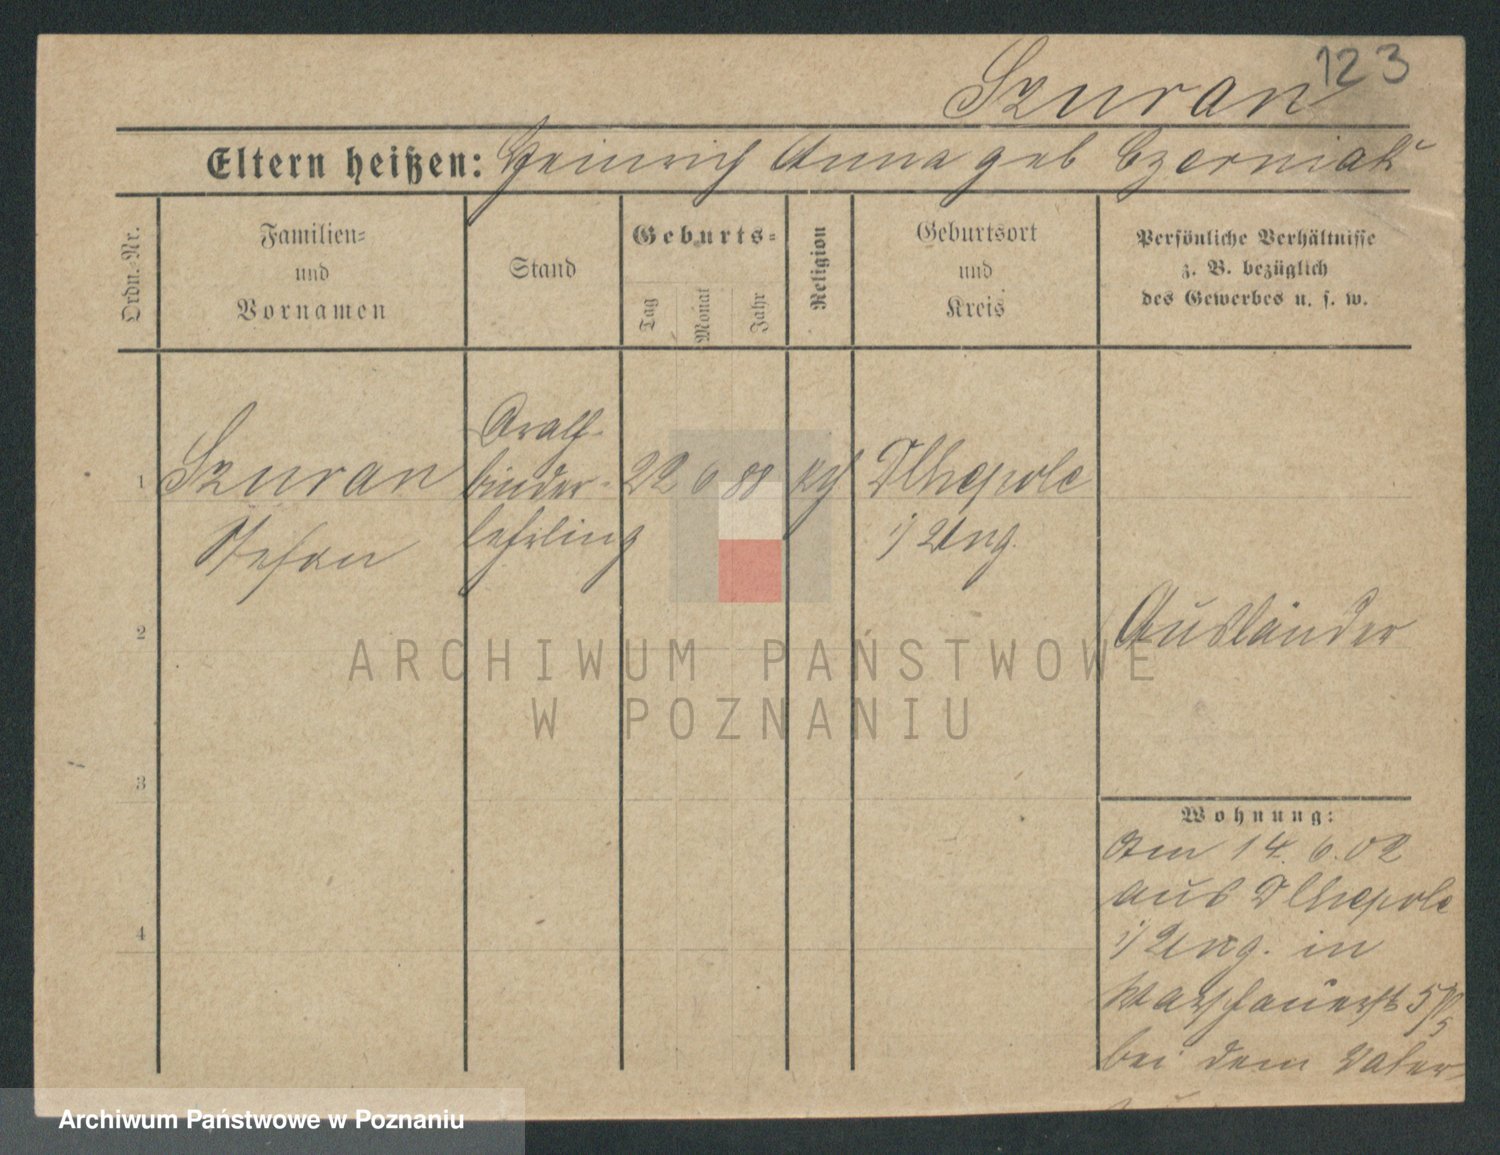 123
Szuran
Eltern heißen: Heinrich Anna geb Czerniak
Ordn.-Nr.
Familien-
und
Vornamen
Stand
Geburts-
Tag
Monat
Jahr
Religion
Geburtsort
und
Kreis
Persönliche Verhältnisse
z. B. bezüglich
des Gewerbes u. s. w.
1
Szuran
Stefan
binder-
lehrling
22 6 88
i/ Ung.
2
Ausländer
3
Wohnung:
Am 14.6.02
aus
i/ Ung. in
Warschauerst 5
bei dem Vater
4
ARCHIWUM PAŃSTWOWE
W POZNANIU
Archiwum Państwowe w Poznaniu